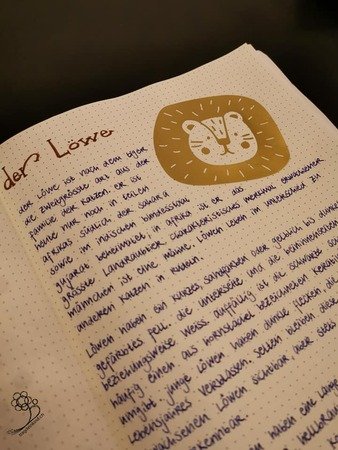 der Löwe
der löwe ist nach dem tiger
die zweitgrösste art aus der
familie der katzen. er ist
heute nur noch in teilen
afrikas südlich der sahara
sowie im indischen bundesstaat
gujarat beheimatet; in afrika ist er das
grösste landraubtier. charakteristisches merkmal erwachsener
männchen ist eine mähne. löwen leben im unterschied zu
anderen katzen in rudeln.
löwen haben ein kurzes, sandfarben oder gelblich bis dunkel
gefärbtes fell; die unterseite und die beininnenseiten
beziehungsweise weiss. auffällig ist die schwarze
häufig einen als hornstachel bezeichneten
umgibt. junge löwen haben dunkle flecken, die
lebensjahres verblassen. selten bleiben diese
löwen sichtbar, aber stets
haben eine